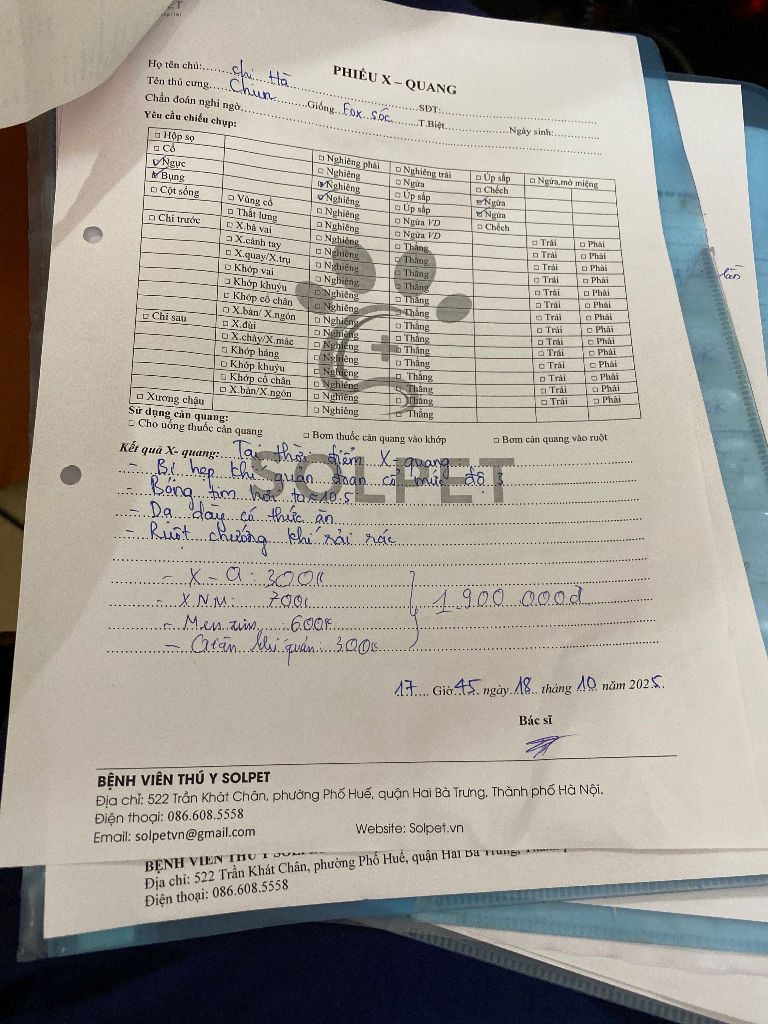 PHIẾU X – QUANG
Họ tên chủ: chị Hà SĐT:
Tên thú cưng: Chun Giống Fox sóc T.Biệt Ngày sinh:
Chẩn đoán nghi ngờ
Yêu cầu chiếu chụp:
□ Hộp sọ □ Nghiêng phải □ Nghiêng trái □ Úp sấp □ Ngửa,mở miệng
□ Cổ □ Nghiêng □ Ngửa □ Chếch
☑ Ngực ☑ Nghiêng □ Úp sấp ☑ Ngửa
☑ Bụng ☑ Nghiêng □ Úp sấp ☑ Ngửa
□ Cột sống □ Vùng cổ □ Nghiêng □ Ngửa VD □ Chếch
□ Thắt lưng □ Nghiêng □ Ngửa VD
□ Chi trước □ X.bả vai □ Nghiêng □ Thẳng □ Trái □ Phải
□ X.cánh tay □ Nghiêng □ Thẳng □ Trái □ Phải
□ X.quay/X.trụ □ Nghiêng □ Thẳng □ Trái □ Phải
□ Khớp vai □ Nghiêng □ Thẳng □ Trái □ Phải
□ Khớp khuỷu □ Nghiêng □ Thẳng □ Trái □ Phải
□ Khớp cổ chân □ Nghiêng □ Thẳng □ Trái □ Phải
□ X.bàn/ X.ngón □ Nghiêng □ Thẳng □ Trái □ Phải
□ Chi sau □ X.đùi □ Nghiêng □ Thẳng □ Trái □ Phải
□ X.chày/X.mác □ Nghiêng □ Thẳng □ Trái □ Phải
□ Khớp háng □ Nghiêng □ Thẳng □ Trái □ Phải
□ Khớp khuỷu □ Nghiêng □ Thẳng □ Trái □ Phải
□ Khớp cổ chân □ Nghiêng □ Thẳng □ Trái □ Phải
□ X.bàn/X.ngón □ Nghiêng □ Thẳng □ Trái □ Phải
□ Xương chậu □ Nghiêng □ Thẳng
Sử dụng cản quang:
□ Cho uống thuốc cản quang □ Bơm thuốc cản quang vào khớp □ Bơm cản quang vào ruột
SOLPET
Kết quả X- quang: Tại thời điểm X-quang
- Bị hẹp khí quản đoạn cổ mức độ 3
- Bóng tim hơi to ≈ 10.5
- Dạ dày có thức ăn
- Ruột chướng khí rải rác
- X-Q: 300k
- XNM: 700k 1.900.000đ
- Men tim 600k
- Giãn khí quản: 300k
17 Giờ 45 ngày 18 tháng 10 năm 2025.
Bác sĩ
BỆNH VIỆN THÚ Y SOLPET
Địa chỉ: 522 Trần Khát Chân, phường Phố Huế, quận Hai Bà Trưng, Thành phố Hà Nội.
Điện thoại: 086.608.5558
Email: solpetvn@gmail.com Website: Solpet.vn
BỆNH VIỆN THÚ Y
Địa chỉ: 522 Trần Khát Chân, phường Phố Huế, quận Hai Bà Trưng,
Điện thoại: 086.608.5558
lần